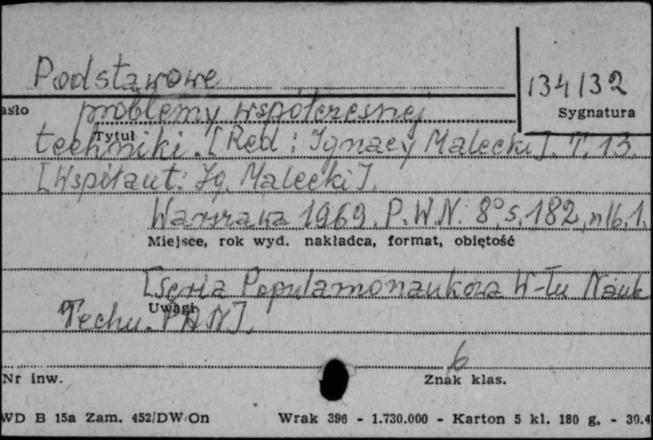 Podstawowe
134132
asło
problemy współczesnej
Sygnatura
Tytuł
techniki. [Red: Ignacy Malecki]. T. 13.
[Współaut: Ig. Malecki].
Warszawa 1969. P.W.N. 8° s. 182, nlb. 1.
Miejsce, rok wyd. nakładca, format, objętość
[Seria Popularnonaukowa W-łu Nauk
Uwagi
Techn. PAN].
6
Nr inw.
Znak klas.
WD B 15a Zam. 452/DW/On Wrak 396 - 1.730.000 - Karton 5 kl. 180 g. - 30.4